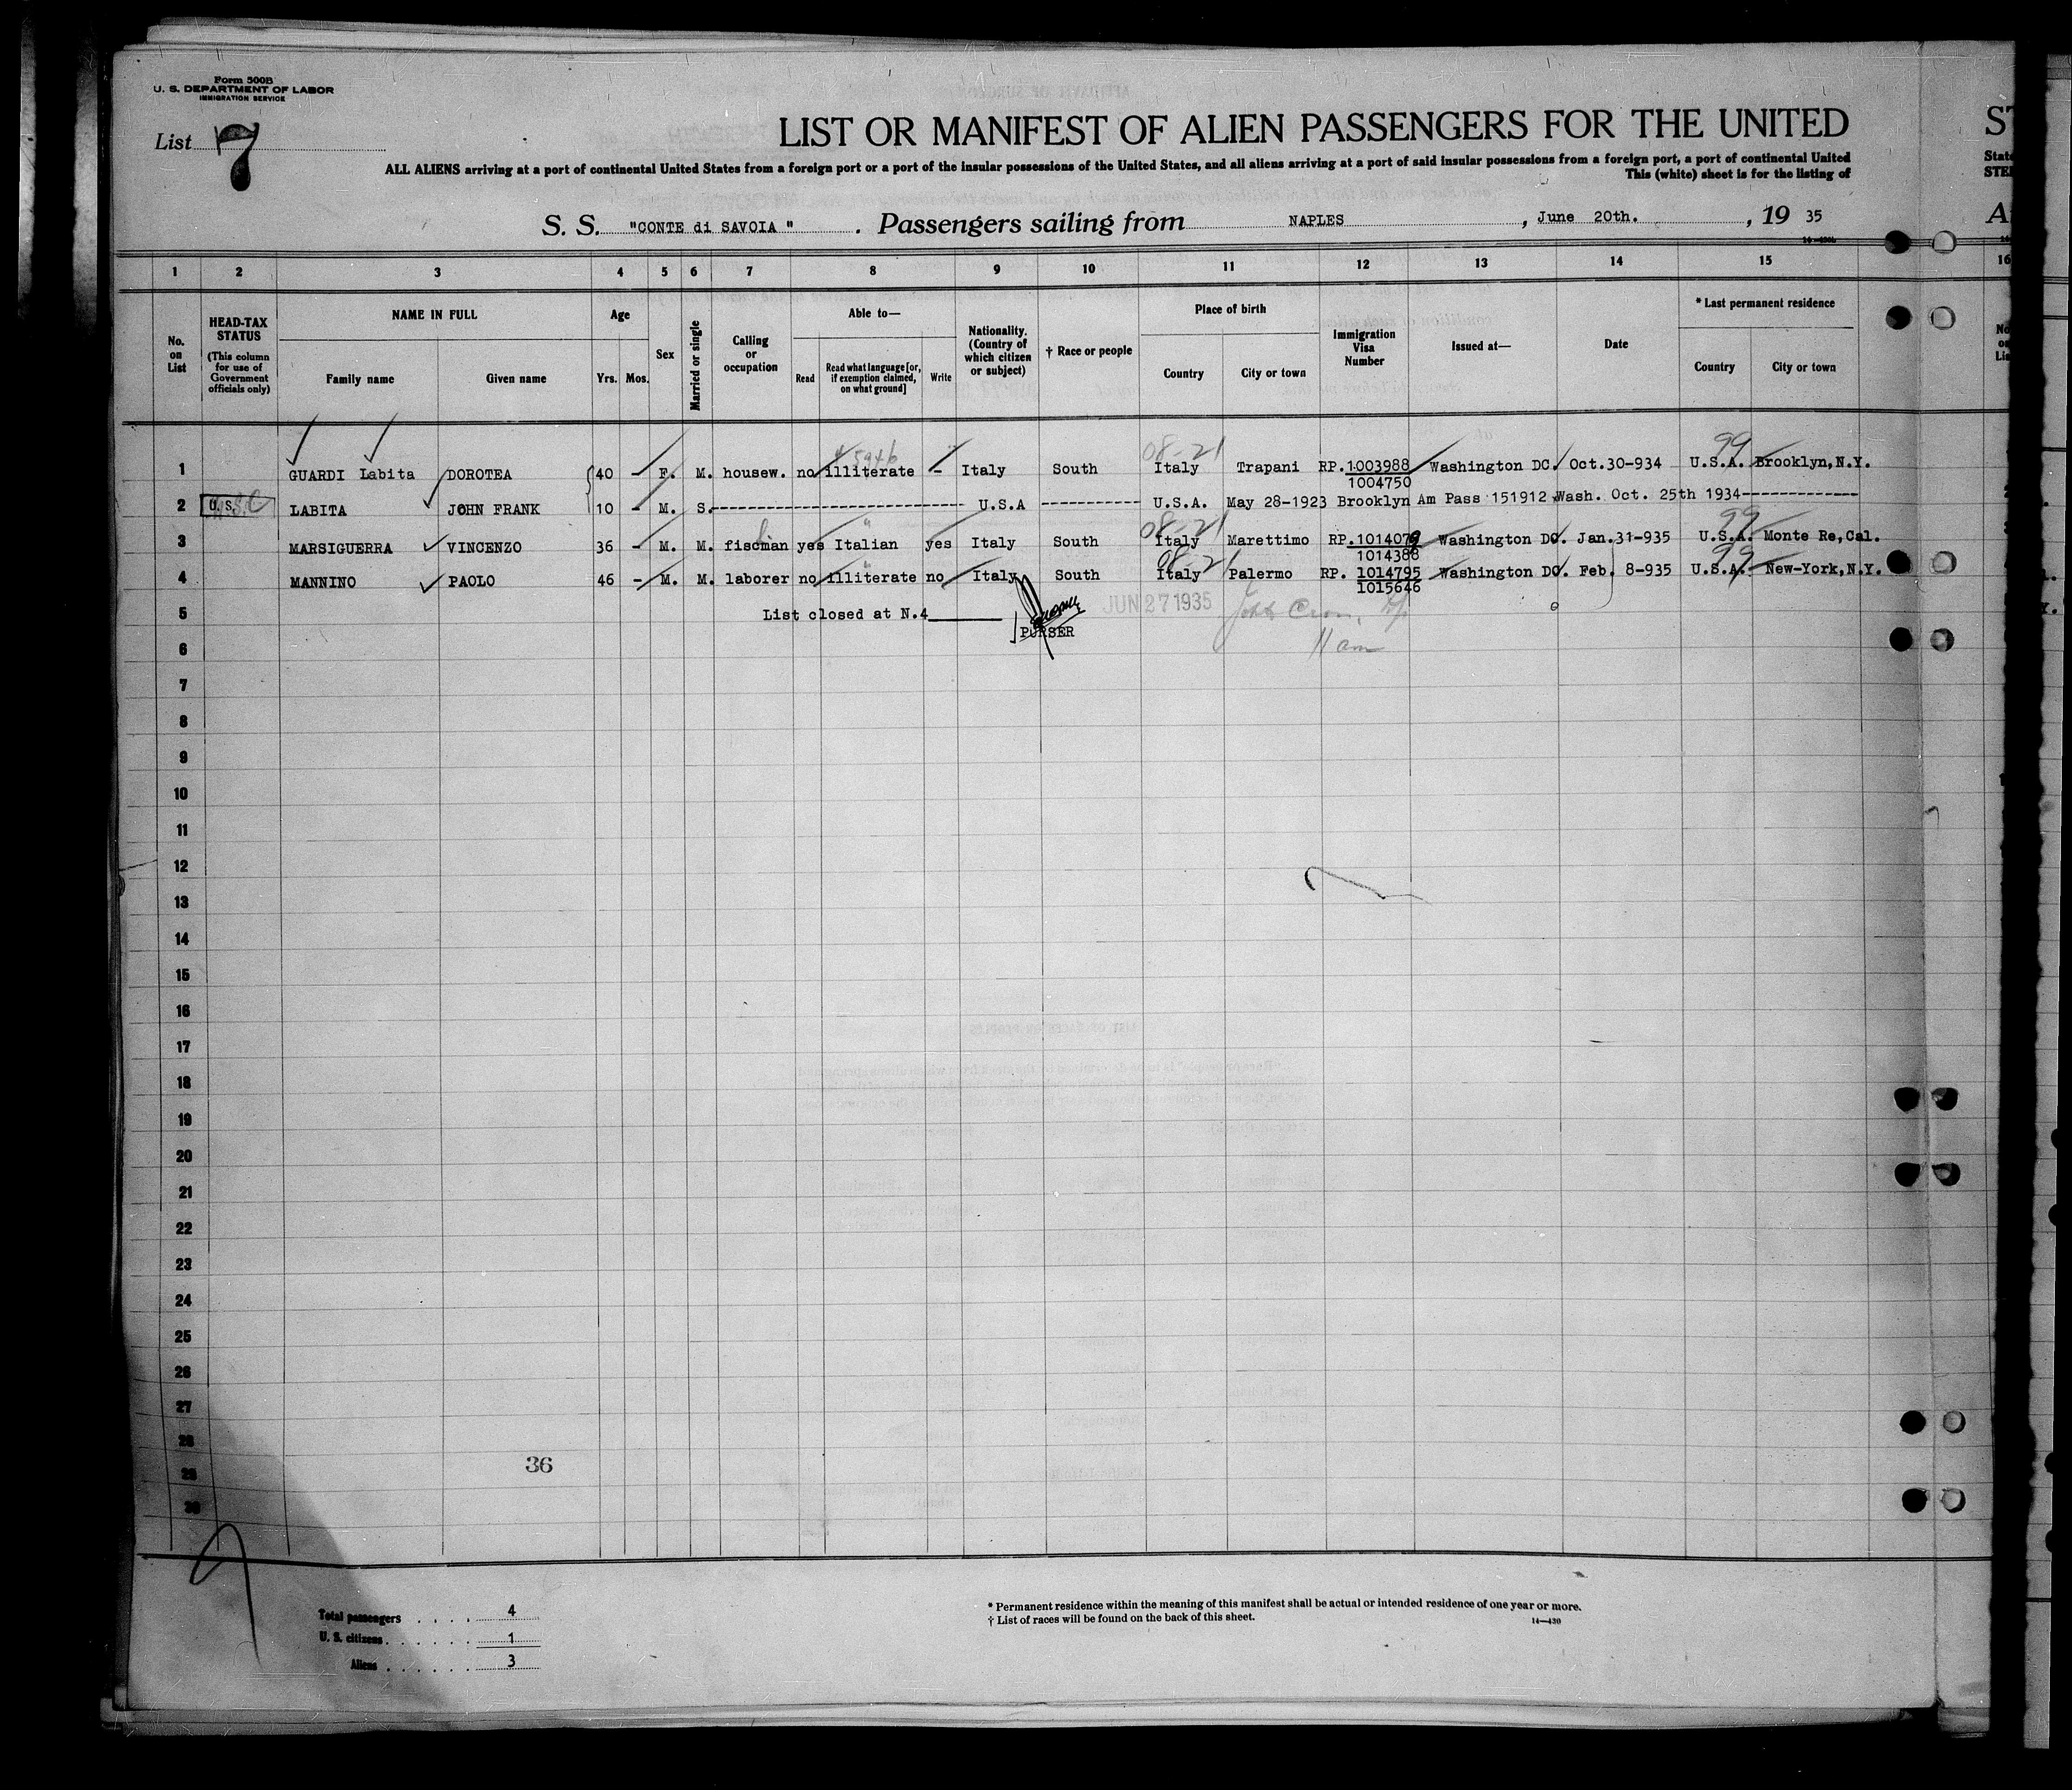 Form 500B
U. S. DEPARTMENT OF LABOR
IMMIGRATION SERVICE
List 7
LIST OR MANIFEST OF ALIEN PASSENGERS FOR THE UNITED
ALL ALIENS arriving at a port of continental United States from a foreign port or a port of the insular possessions of the United States, and all aliens arriving at a port of said insular possessions from a foreign port, a port of continental United
This (white) sheet is for the listing of
S. S. "CONTE di SAVOIA " . Passengers sailing from NAPLES , June 20th. , 19 35
1 2 3 4 5 6 7 8 9 10 11 12 13 14 15 16
No. on List
HEAD-TAX STATUS (This column for use of Government officials only)
NAME IN FULL
Family name Given name
Age
Yrs. Mos.
Sex
Married or single
Calling or occupation
Able to—
Read Read what language [or, if exemption claimed, on what ground] Write
Nationality. (Country of which citizen or subject)
† Race or people
Place of birth
Country City or town
Immigration Visa Number
Issued at—
Date
* Last permanent residence
Country City or town
08-21 99
1 GUARDI Labita DOROTEA 40 - F. M. housew. no illiterate - Italy South Italy Trapani RP.1003988 Washington DC. Oct.30-934 U.S.A. Brooklyn,N.Y.
1004750
2 U.S. LABITA JOHN FRANK 10 - M. S.------------------------ U.S.A ----------- U.S.A. May 28-1923 Brooklyn Am Pass 151912 Wash. Oct. 25th 1934-------------
08-21 99
3 MARSIGUERRA VINCENZO 36 - M. M. fiscman yes Italian yes Italy South Italy Marettimo RP.1014079 Washington DC. Jan.31-935 U.S.A. Monte Re,Cal.
1014388
08-21 99
4 MANNINO PAOLO 46 - M. M. laborer no illiterate no Italy South Italy Palermo RP. 1014795 Washington DC. Feb. 8-935 U.S.A. New-York,N.Y.
1015646
5 List closed at N.4
JUN 27 1935
PURSER
6 11 am
7
8
9
10
11
12
13
14
15
16
17
18
19
20
21
22
23
24
25
26
27
28
29
30
36
Total passengers . . . . 4
U. S. citizens . . . . . . 1
Aliens . . . . . . 3
* Permanent residence within the meaning of this manifest shall be actual or intended residence of one year or more.
† List of races will be found on the back of this sheet.
14—430